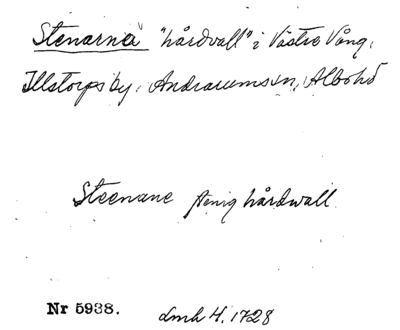 Stenarna "hårdvall" i Västre Vång,
Illstorps by, Andrarums sn, Albo hd
Steenane stenig hårdwall
Nr 5938. lmh 4. 1728